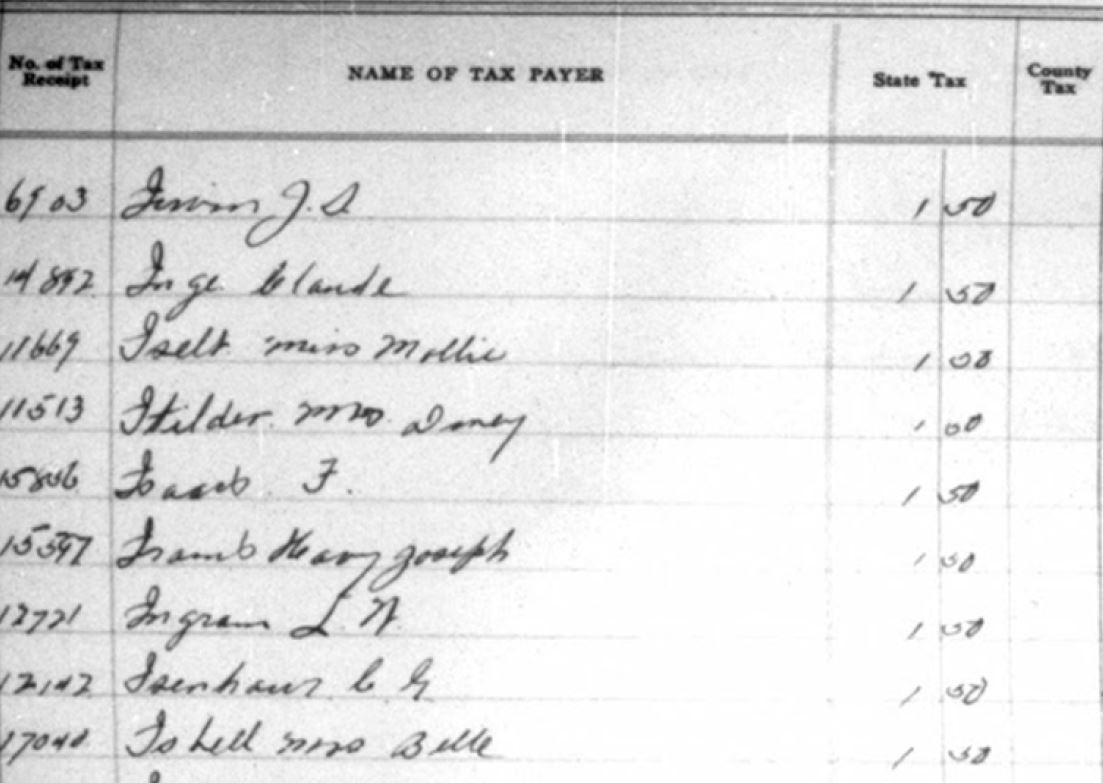 No. of Tax Receipt NAME OF TAX PAYER State Tax County Tax
6903 Irwin J. S. 1 50
14892 Inge Claude 1 50
11669 Iselt miss Mollie 1 50
11513 mrs. 1 50
F. 1 50
15597 Joseph 1 50
12721 Ingram L. W. 1 50
12142 Isenhaur C G 1 50
17040 Isbell mrs Belle 1 50